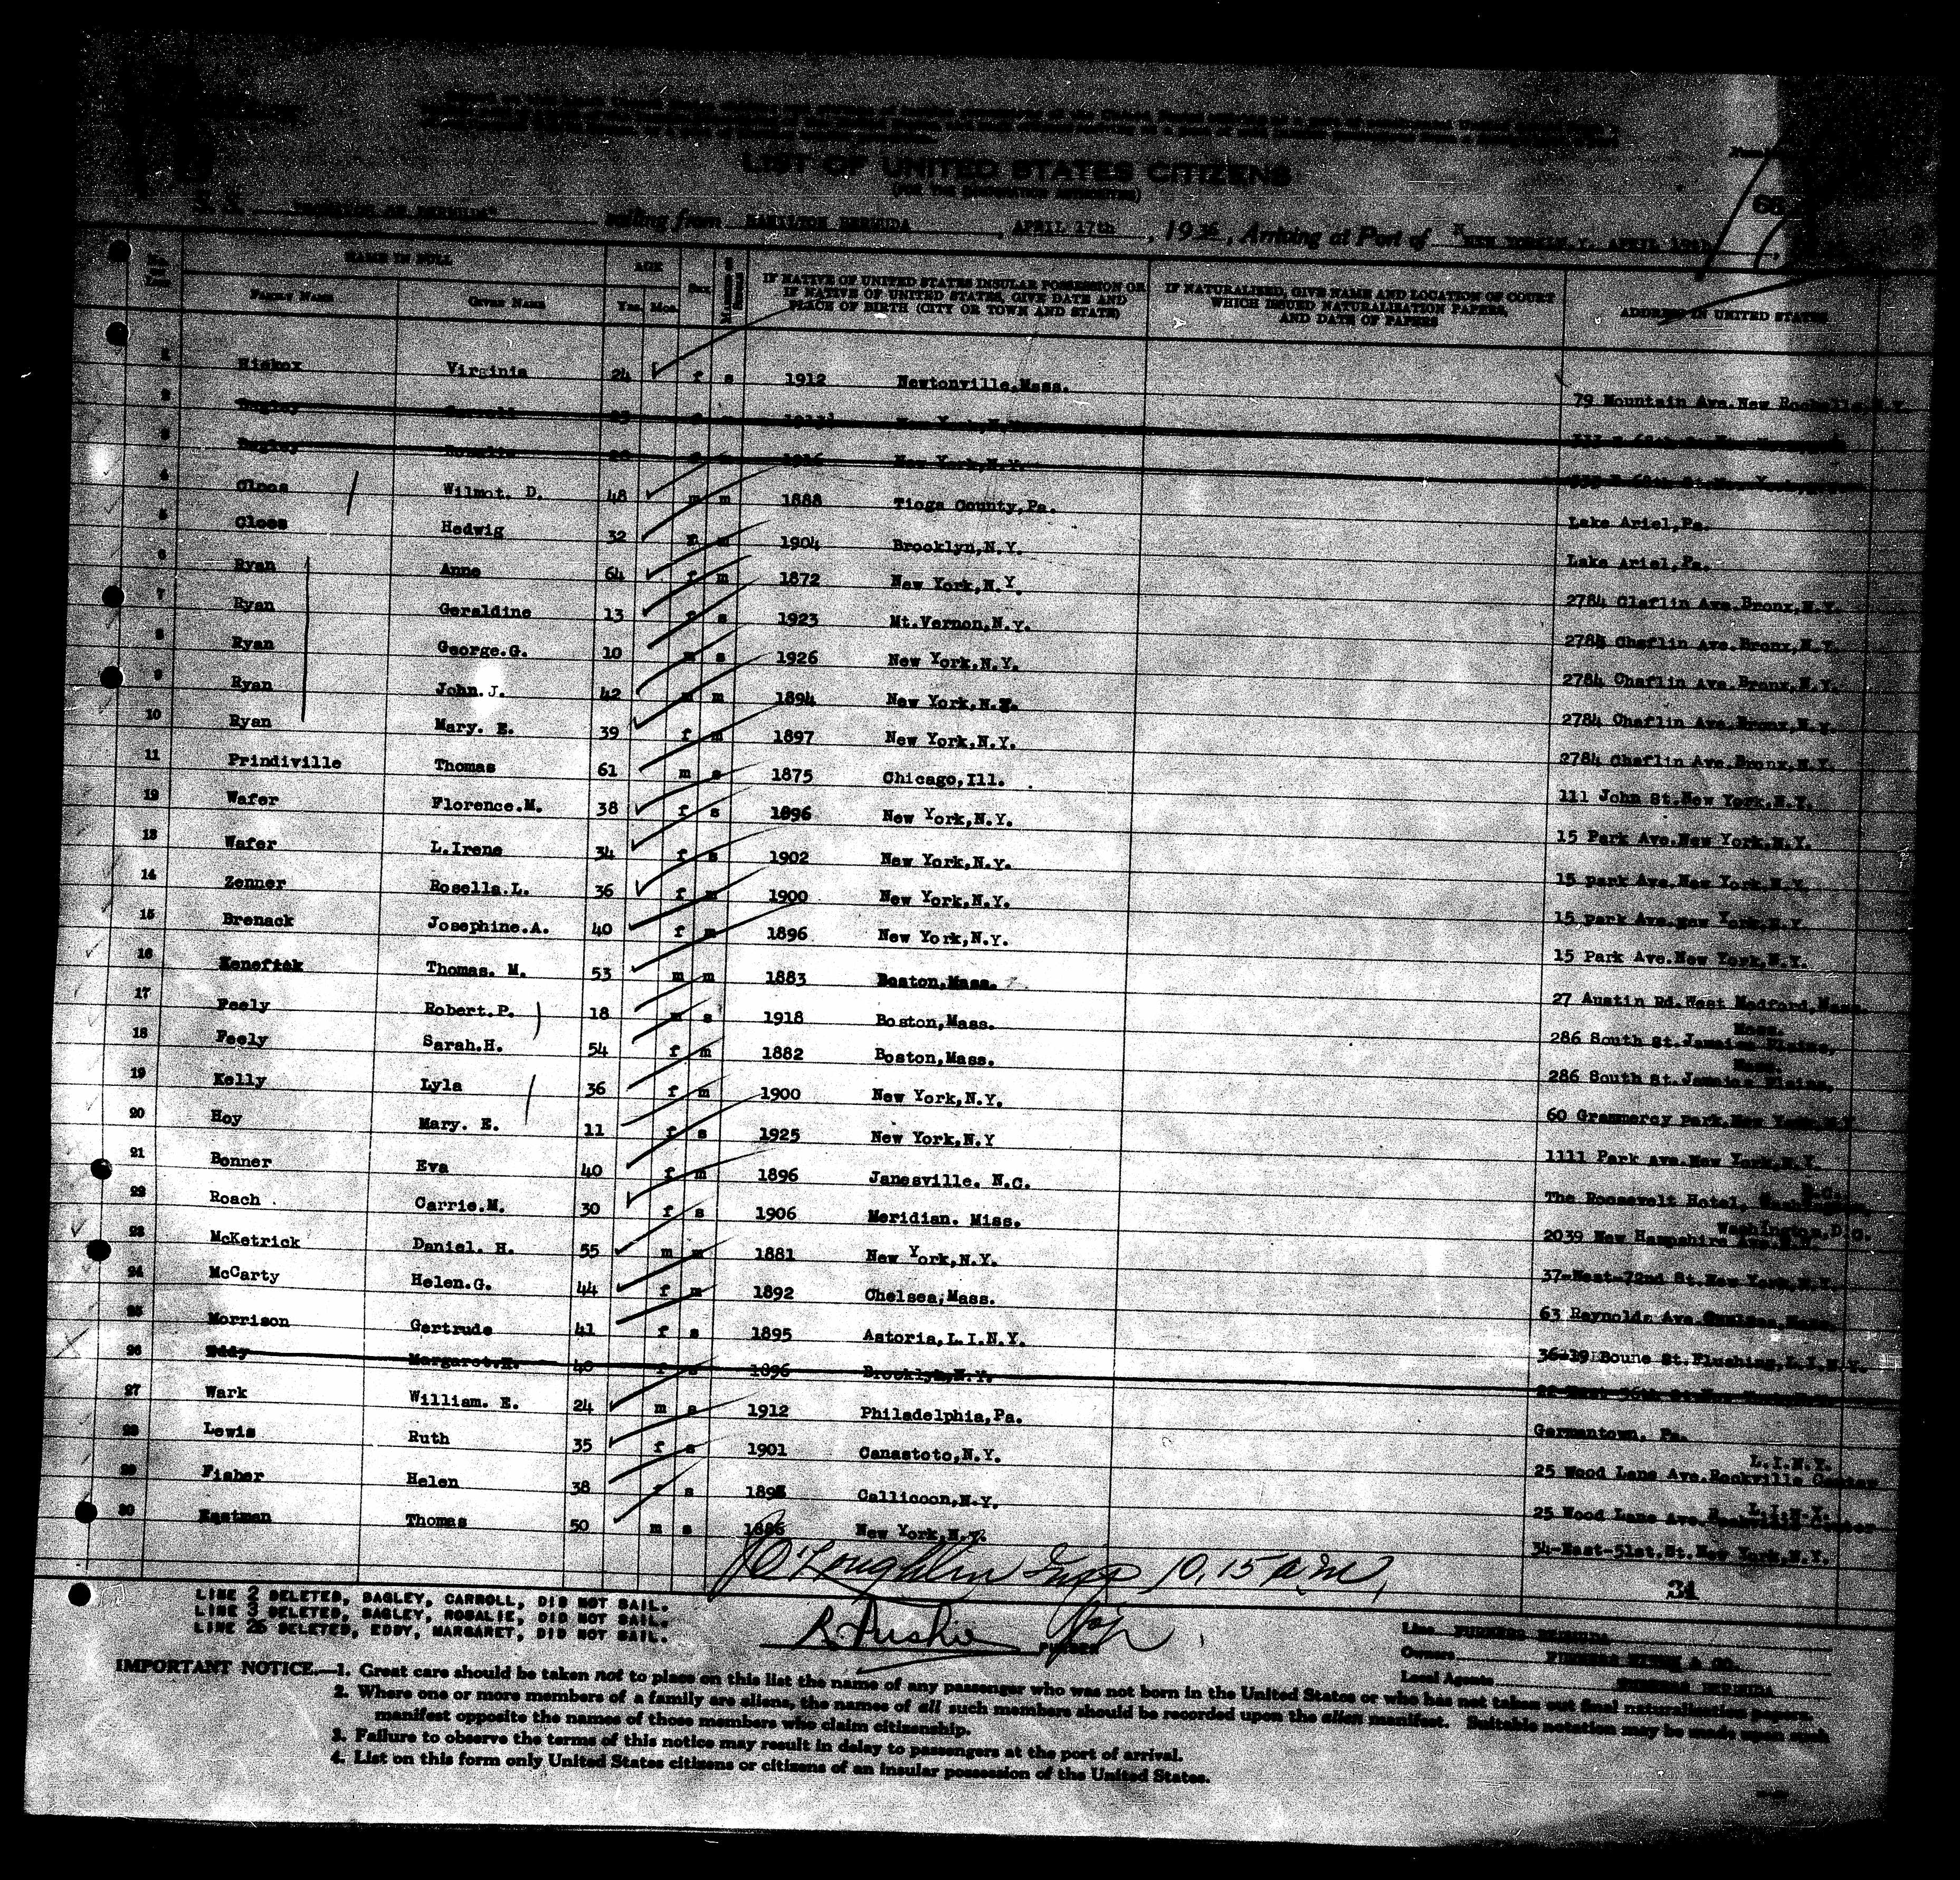 LIST OF UNITED STATES CITIZENS
(FOR THE IMMIGRATION AUTHORITIES)
S. S. "MONARCH OF BERMUDA" sailing from HAMILTON BERMUDA, APRIL 17th, 1936, Arriving at Port of NEW YORK N.Y. APRIL
NAME IN FULL AGE Sex
IF NATIVE OF UNITED STATES INSULAR POSSESSION OR
IF NATIVE OF UNITED STATES, GIVE DATE AND
PLACE OF BIRTH (CITY OR TOWN AND STATE)
IF NATURALIZED, GIVE NAME AND LOCATION OF COURT
WHICH ISSUED NATURALIZATION PAPERS,
AND DATE OF PAPERS
ADDRESS IN UNITED STATES
FAMILY NAME GIVEN NAME Yrs. Mos.
1 Hickox Virginia 24 f s 1912 Newtonville.Mass. 79 Mountain Ave.New Rochelle.N.Y.
2 Bagley Carroll 23 New York,N.Y.
3 Bagley Rosalie New York,N.Y.
4 Cloos Wilmot. D. 48 m m 1888 Tioga County,Pa. Lake Ariel,Pa.
5 Cloos Hedwig 32 f m 1904 Brooklyn,N.Y. Lake Ariel,Pa.
6 Ryan Anne 64 f m 1872 New York,N.Y. 2784 Claflin Ave.Bronx,N.Y.
7 Ryan Geraldine 13 f s 1923 Mt.Vernon,N.Y. 2784 Chaflin Ave.Bronx,N.Y.
8 Ryan George.G. 10 m s 1926 New York,N.Y. 2784 Chaflin Ave.Bronx,N.Y.
9 Ryan John.J. 42 m m 1894 New York,N.Y. 2784 Chaflin Ave.Bronx,N.Y.
10 Ryan Mary. E. 39 f m 1897 New York,N.Y. 2784 Chaflin Ave.Bronx,N.Y.
11 Prindiville Thomas 61 m s 1875 Chicago,Ill. 111 John St.New York,N.Y.
12 Wafer Florence.M. 38 f s 1896 New York,N.Y. 15 Park Ave.New York,N.Y.
13 Wafer L.Irene 34 f s 1902 New York,N.Y. 15 park Ave.New York,N.Y.
14 Zenner Rosella.L. 36 f m 1900 New York,N.Y. 15 park Ave.new York,N.Y.
15 Brenack Josephine.A. 40 f m 1896 New York,N.Y. 15 Park Ave.New York,N.Y.
16 Kenefick Thomas. M. 53 m m 1883 Boston,Mass. 27 Austin Rd.West Medford,Mass.
17 Feely Robert.P. 18 m s 1918 Boston,Mass. 286 South St.Jamaica Plains, Mass.
18 Feely Sarah.H. 54 f m 1882 Boston,Mass. 286 South St.Jamaica Plains. Mass.
19 Kelly Lyla 36 f m 1900 New York,N.Y. 60 Grammercy park.New York.N.Y
20 Hoy Mary. E. 11 f s 1925 New York,N.Y 1111 Park ave.New York,N.Y.
21 Bonner Eva 40 f m 1896 Janesville. N.C. The Roosevelt Hotel, Washington, D.C.
22 Roach Carrie.M. 30 f s 1906 Meridian. Miss. 2039 New Hampshire Ave.N.W. Washington,D.C.
23 McKetrick Daniel. H. 55 m m 1881 New York,N.Y. 37-West-72nd St.New York,N.Y.
24 McCarty Helen.G. 44 f m 1892 Chelsea,Mass. 63 Reynolds Ave.Chelsea,Mass.
25 Morrison Gertrude 41 f s 1895 Astoria,L.I.N.Y. 36-19 Boune St.Flushing,L.I.N.Y.
26 Eddy Margaret. 40 f s 1896 Brooklyn,N.Y.
27 Wark William. E. 24 m s 1912 Philadelphia,Pa. Germantown, Pa.
28 Lewis Ruth 35 f s 1901 Canastoto,N.Y. 25 Wood Lane Ave.Rockville Center L.I.N.Y.
29 Fisher Helen 38 f s 1898 Callicoon,N.Y. 25 Wood Lane Ave.Rockville Center L.I.N.Y.
30 Eastman Thomas 50 m s 1886 New York,N.Y. 34-East-51st.St.New York,N.Y.
O'Loughlin Insp 10,15 a.m,
31
LINE 2 DELETED, BAGLEY, CARROLL, DID NOT SAIL.
LINE 3 DELETED, BAGLEY, ROSALIE, DID NOT SAIL.
LINE 26 DELETED, EDDY, MARGARET, DID NOT SAIL.
PURSER
Line FURNESS BERMUDA
Owners FURNESS WITHY & CO.
Local Agents FURNESS BERMUDA
IMPORTANT NOTICE.—1. Great care should be taken not to place on this list the name of any passenger who was not born in the United States or who has not taken out final naturalization papers.
2. Where one or more members of a family are aliens, the names of all such members should be recorded upon the alien manifest. Suitable notation may be made upon such
manifest opposite the names of those members who claim citizenship.
3. Failure to observe the terms of this notice may result in delay to passengers at the port of arrival.
4. List on this form only United States citizens or citizens of an insular possession of the United States.